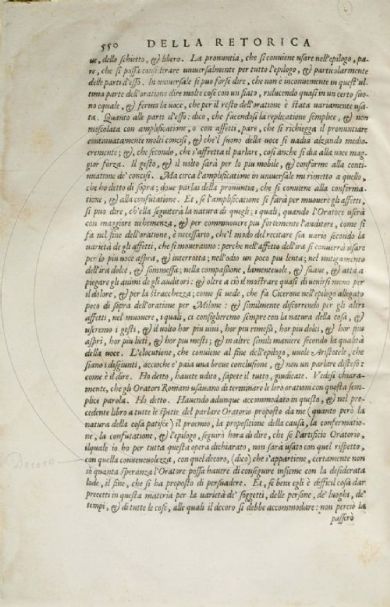 550 DELLA RETORICA
ue, dello schietto, & libero. La pronuntia, che si conuiene usare nell'epilogo, pa-
re, che si possa considerare uniuersalmente per tutto l'epilogo, & particolarmente
delle parti d'esso. In uniuersale si può forse dire, che non è inconueniente in quest'ul
tima parte dell'oratione dire molte cose con un fiato, riducendo quasi in un certo suo
no equale, & fermo la uoce, che per il resto dell'oratione è stata uariamente usa-
ta. Quanto alle parti d'esso: dico, che facendosi la replicatione semplice, & non
mescolata con amplificatione, o con affetti, pare, che si richiegga il pronuntiare
continuatamente molti concisi, & che'l suono della uoce si uadia alzando medio-
cremente; &, che secondo, che s'affretta il parlare, così anche si dia alla uoce mag
gior forza. Il gesto, & il uolto sarà per lo piu mobile, & conforme alla conti-
nuatione de' concisi. Ma circa l'amplificatione in uniuersale mi rimetto a quello,
che ho detto di sopra; doue parlai della pronuntia, che si conuiene alla conferma-
tione, & alla confutatione. Et, se l'amplificatione si farà per muouere gli affetti,
si può dire, ch'ella seguiterà la natura di quegli; i quali, quando l'Oratore userà
con maggiore uehemenza, & per commuouere piu fortemente l'auditore, come si
fa nel fine dell'oratione, è necessario, che'l modo del recitare sia uario secondo la
uarietà de gli affetti, che si moueranno: perche nell'affetto dell'ira si conuerrà usare
per lo piu uoce aspra, & interrotta; nell'odio un poco piu lenta; nel mitigamento
dell'ira dolce, & sommessa; nella compassione, lamenteuole, & soaue, & atta a
piegare gli animi de gli auditori; & oltre a ciò il mostrare quasi di uenirsi meno per
il dolore, & per la stracchezza; come si uede, che fa Cicerone nell'epilogo allegato
poco di sopra dell'oratione per Milone: & similmente discorrendo per gli altri
affetti, nel muouere, i quali, ci consiglieremo sempre con la natura della cosa, &
useremo i gesti, & il uolto hor piu uiui, hor piu remessi, hor piu dolci, & hor piu
aspri, hor piu lieti, & hor piu mesti; & in altre simili maniere secondo la qualità
della uoce. L'elocutione, che conuiene al fine dell'epilogo, uuole Aristotele, che
siano i disgiunti, accioche e' paia una breue conclusione, & non un parlare disteso:
come è il dire. Ho detto, hauete udito, sapete il tutto, giudicate. Vedesi chiara-
mente, che gli Oratori Romani usauano di terminare le loro orationi con questa sem
plice parola. Ho detto. Hauendo adunque accommodato in questo, & nel pre-
cedente libro a tutte le spetie del parlare Oratorio proposto da me (quanto però la
natura della cosa patisce) il proemio, la propositione della causa, la confermatio-
ne, la confutatione, & l'epilogo, seguirà hora di dire, che se l'artificio Oratorio,
ilquale io ho per tutta questa opera dichiarato, non sarà usato con quel rispetto,
con quella conueneuolezza, con quel decoro, (dico) che s'appartiene, certamente non
Decoro
in quanta speranza l'Oratore possa hauere di conseguire insieme con la desiderata
lode, il fine, che si ha proposto di persuadere. Et, se bene egli è difficil cosa dar
precetti in questa materia per la uarietà de' soggetti, delle persone, de' luoghi, de'
tempi, & di tutte le cose, alle quali il decoro si debbe accommodare: non perciò la
passerò